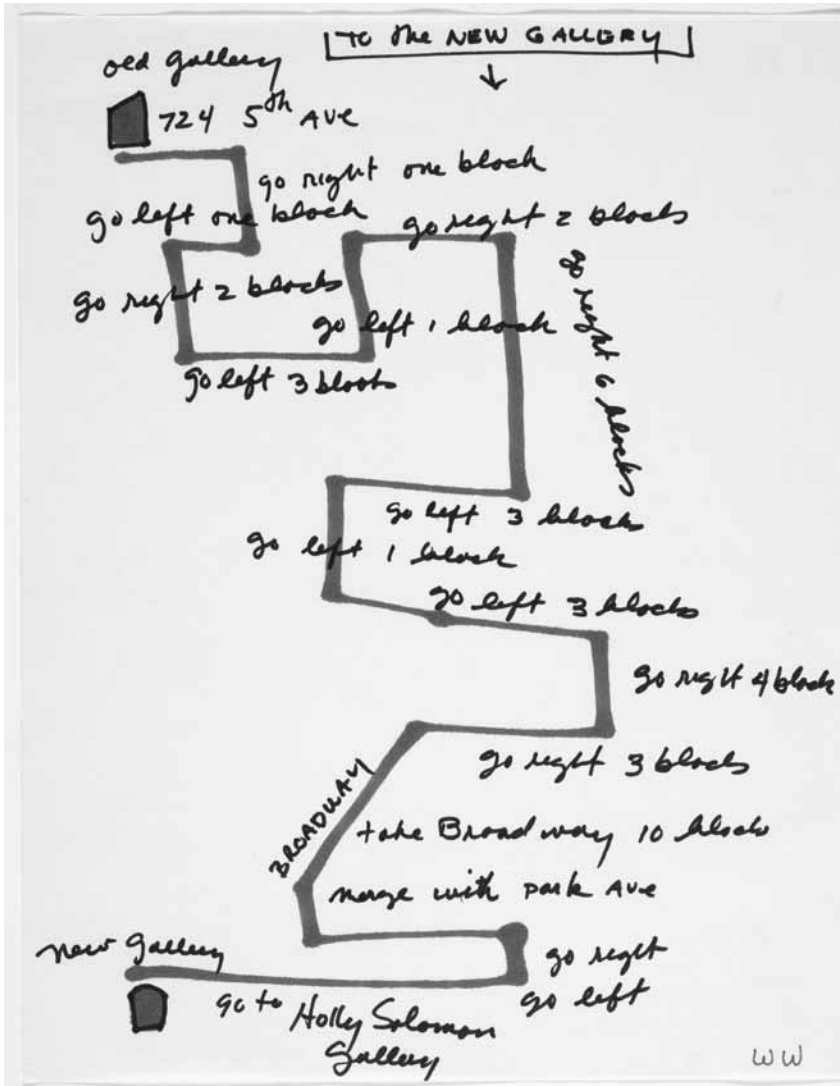 TO the NEW GALLERY
old gallery
724 5th AVE
go right one block
go left one block
go right 2 blocks
go right 2 blocks
go left 1 block
go right 6 blocks
go left 3 blocks
go left 3 blocks
go left 1 block
go left 3 blocks
go right 4 block
go right 3 blocks
BROADWAY
take Broadway 10 blocks
merge with park AVE
new gallery
go right
go left
go to Holly Solomon
Gallery
WW